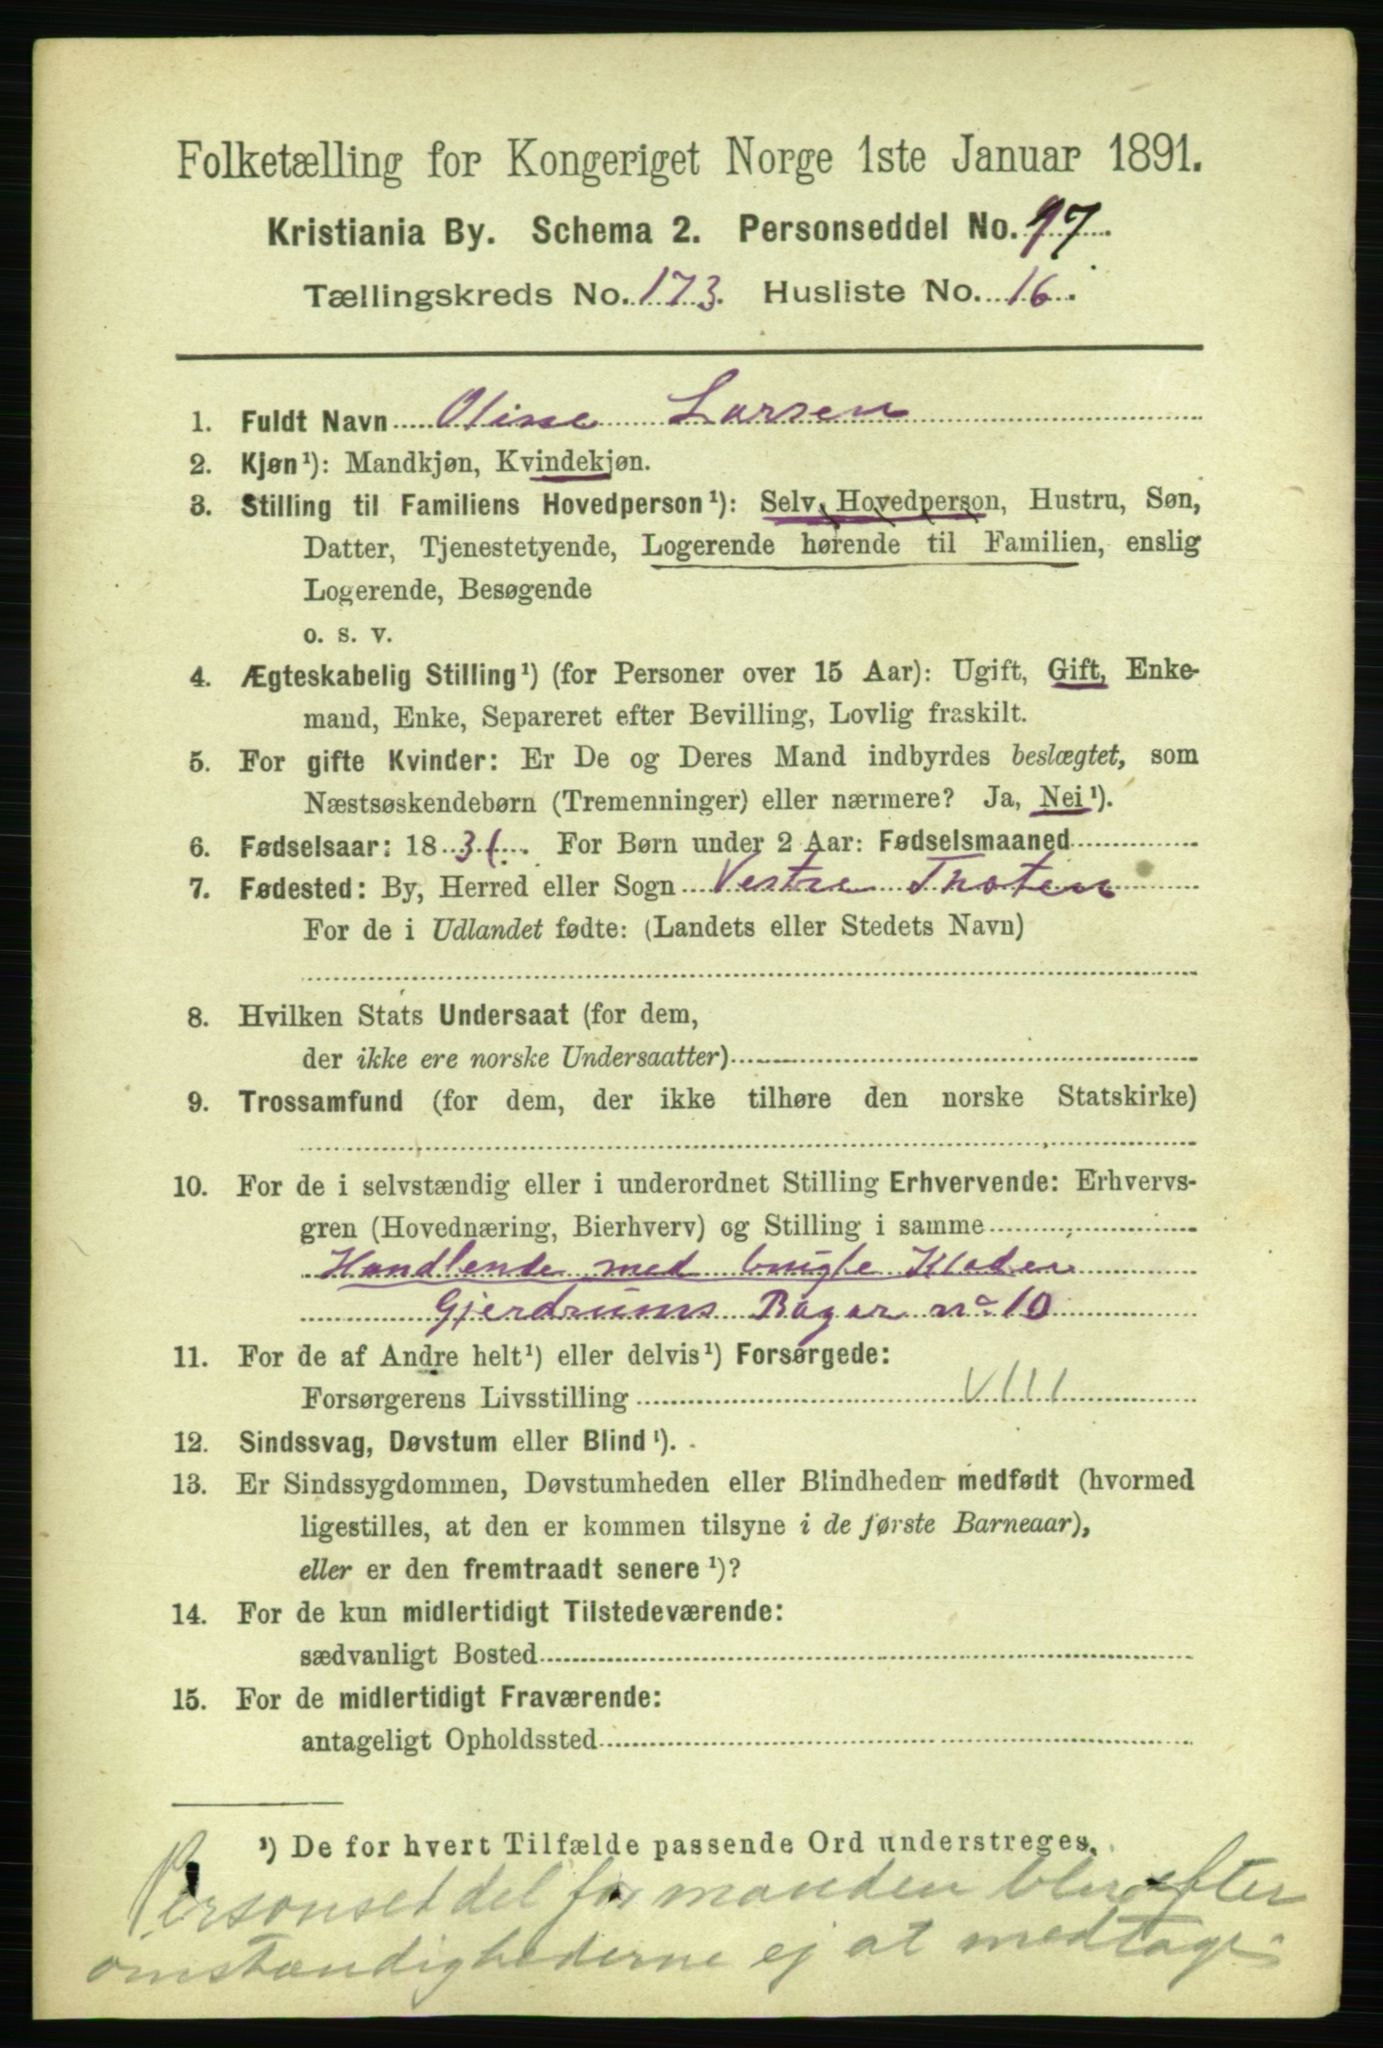 Folketælling for Kongeriget Norge 1ste Januar 1891.
Kristiania By. Schema 2. Personseddel No. 97.
Tællingskreds No. 173. Husliste No. 16.
1. Fuldt Navn Oline Larsen
2. Kjøn¹): Mandkjøn, Kvindekjøn.
3. Stilling til Familiens Hovedperson¹): Selv Hovedperson, Hustru, Søn,
Datter, Tjenestetyende, Logerende hørende til Familien, enslig
Logerende, Besøgende
o. s. v.
4. Ægteskabelig Stilling¹) (for Personer over 15 Aar): Ugift, Gift, Enke-
mand, Enke, Separeret efter Bevilling, Lovlig fraskilt.
5. For gifte Kvinder: Er De og Deres Mand indbyrdes beslægtet, som
Næstsøskendebørn (Tremenninger) eller nærmere? Ja, Nei¹).
6. Fødselsaar: 1831. For Børn under 2 Aar: Fødselsmaaned
7. Fødested: By, Herred eller Sogn Vestre Thoten
For de i Udlandet fødte: (Landets eller Stedets Navn)
8. Hvilken Stats Undersaat (for dem,
der ikke ere norske Undersaatter)
9. Trossamfund (for dem, der ikke tilhøre den norske Statskirke)
10. For de i selvstændig eller i underordnet Stilling Erhvervende: Erhvervs-
gren (Hovednæring, Bierhverv) og Stilling i samme
Handlende med brugte Klæder
Gjerdrums Bazar no 10
11. For de af Andre helt¹) eller delvis¹) Forsørgede:
Forsørgerens Livsstilling VIII
12. Sindssvag, Døvstum eller Blind¹).
13. Er Sindssygdommen, Døvstumheden eller Blindheden medfødt (hvormed
ligestilles, at den er kommen tilsyne i de første Barneaar),
eller er den fremtraadt senere¹)?
14. For de kun midlertidigt Tilstedeværende:
sædvanligt Bosted
15. For de midlertidigt Fraværende:
antageligt Opholdssted
¹) De for hvert Tilfælde passende Ord understreges.
Personseddel for manden blir efter
omstændighederne ej at medtage